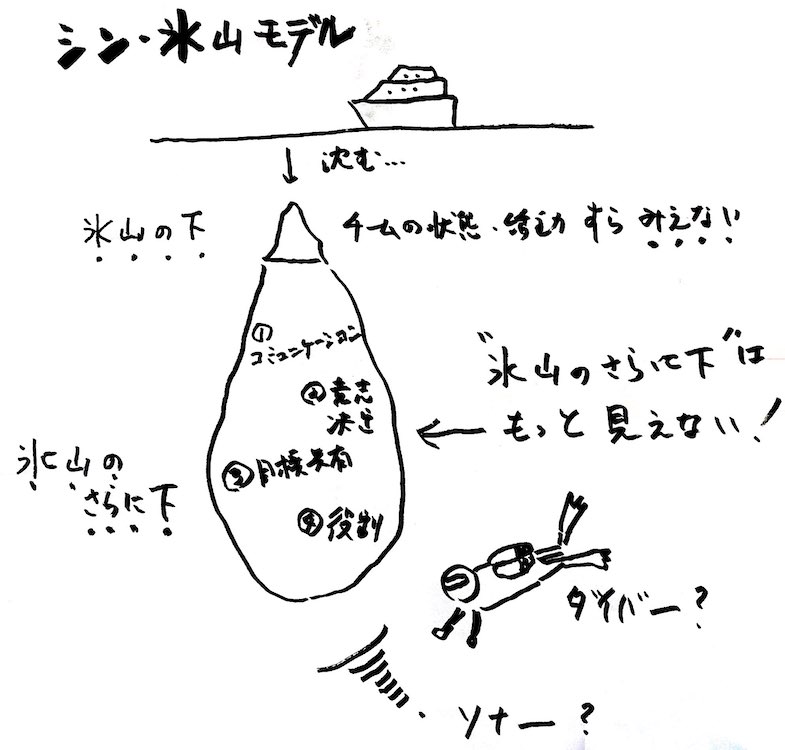 シン・氷山モデル
沈む...
氷山の下
チームの状態・活動すらみえない
①
コミュニケーション
②意志
決定
③目標共有
④役割
氷山の
さらに下
"氷山のさらに下"は
もっと見えない!
ダイバー?
ソナー?